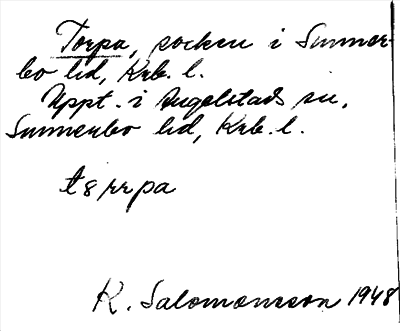 Torpa, socken i Sunner-
bo hd, Krb. l.
Uppt. i Angelstads sn,
Sunnerbo hd, Krb. l.
tɜrpa
R. Salomonsson 1948